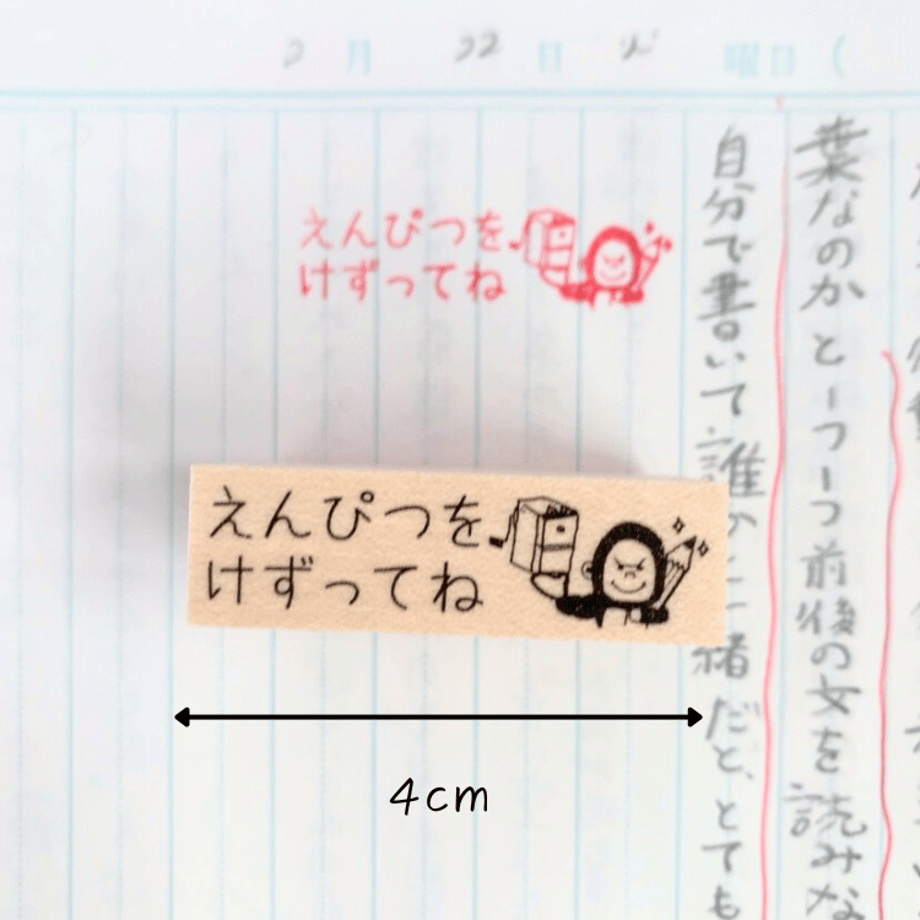 月 22 日 火 曜日 (
葉なのかと一つ一つ前後の文を読みな
自分で書いて誰か
緒だと、とても
えんぴつを
けずってね
えんぴつを
けずってね
4cm